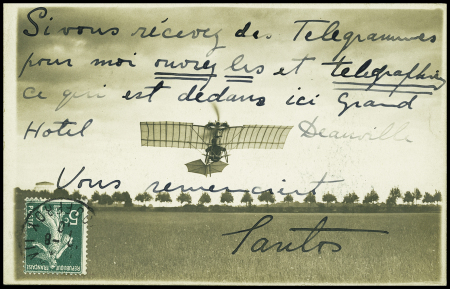 Si vous récevez des Telegrammes
pour moi ouvrez les et telegraphiez
ce qui est dedans ici Grand
Hotel Deauville
Vous remerciant
Santos
5c
POSTES
RÉPUBLIQUE
FRANÇAISE